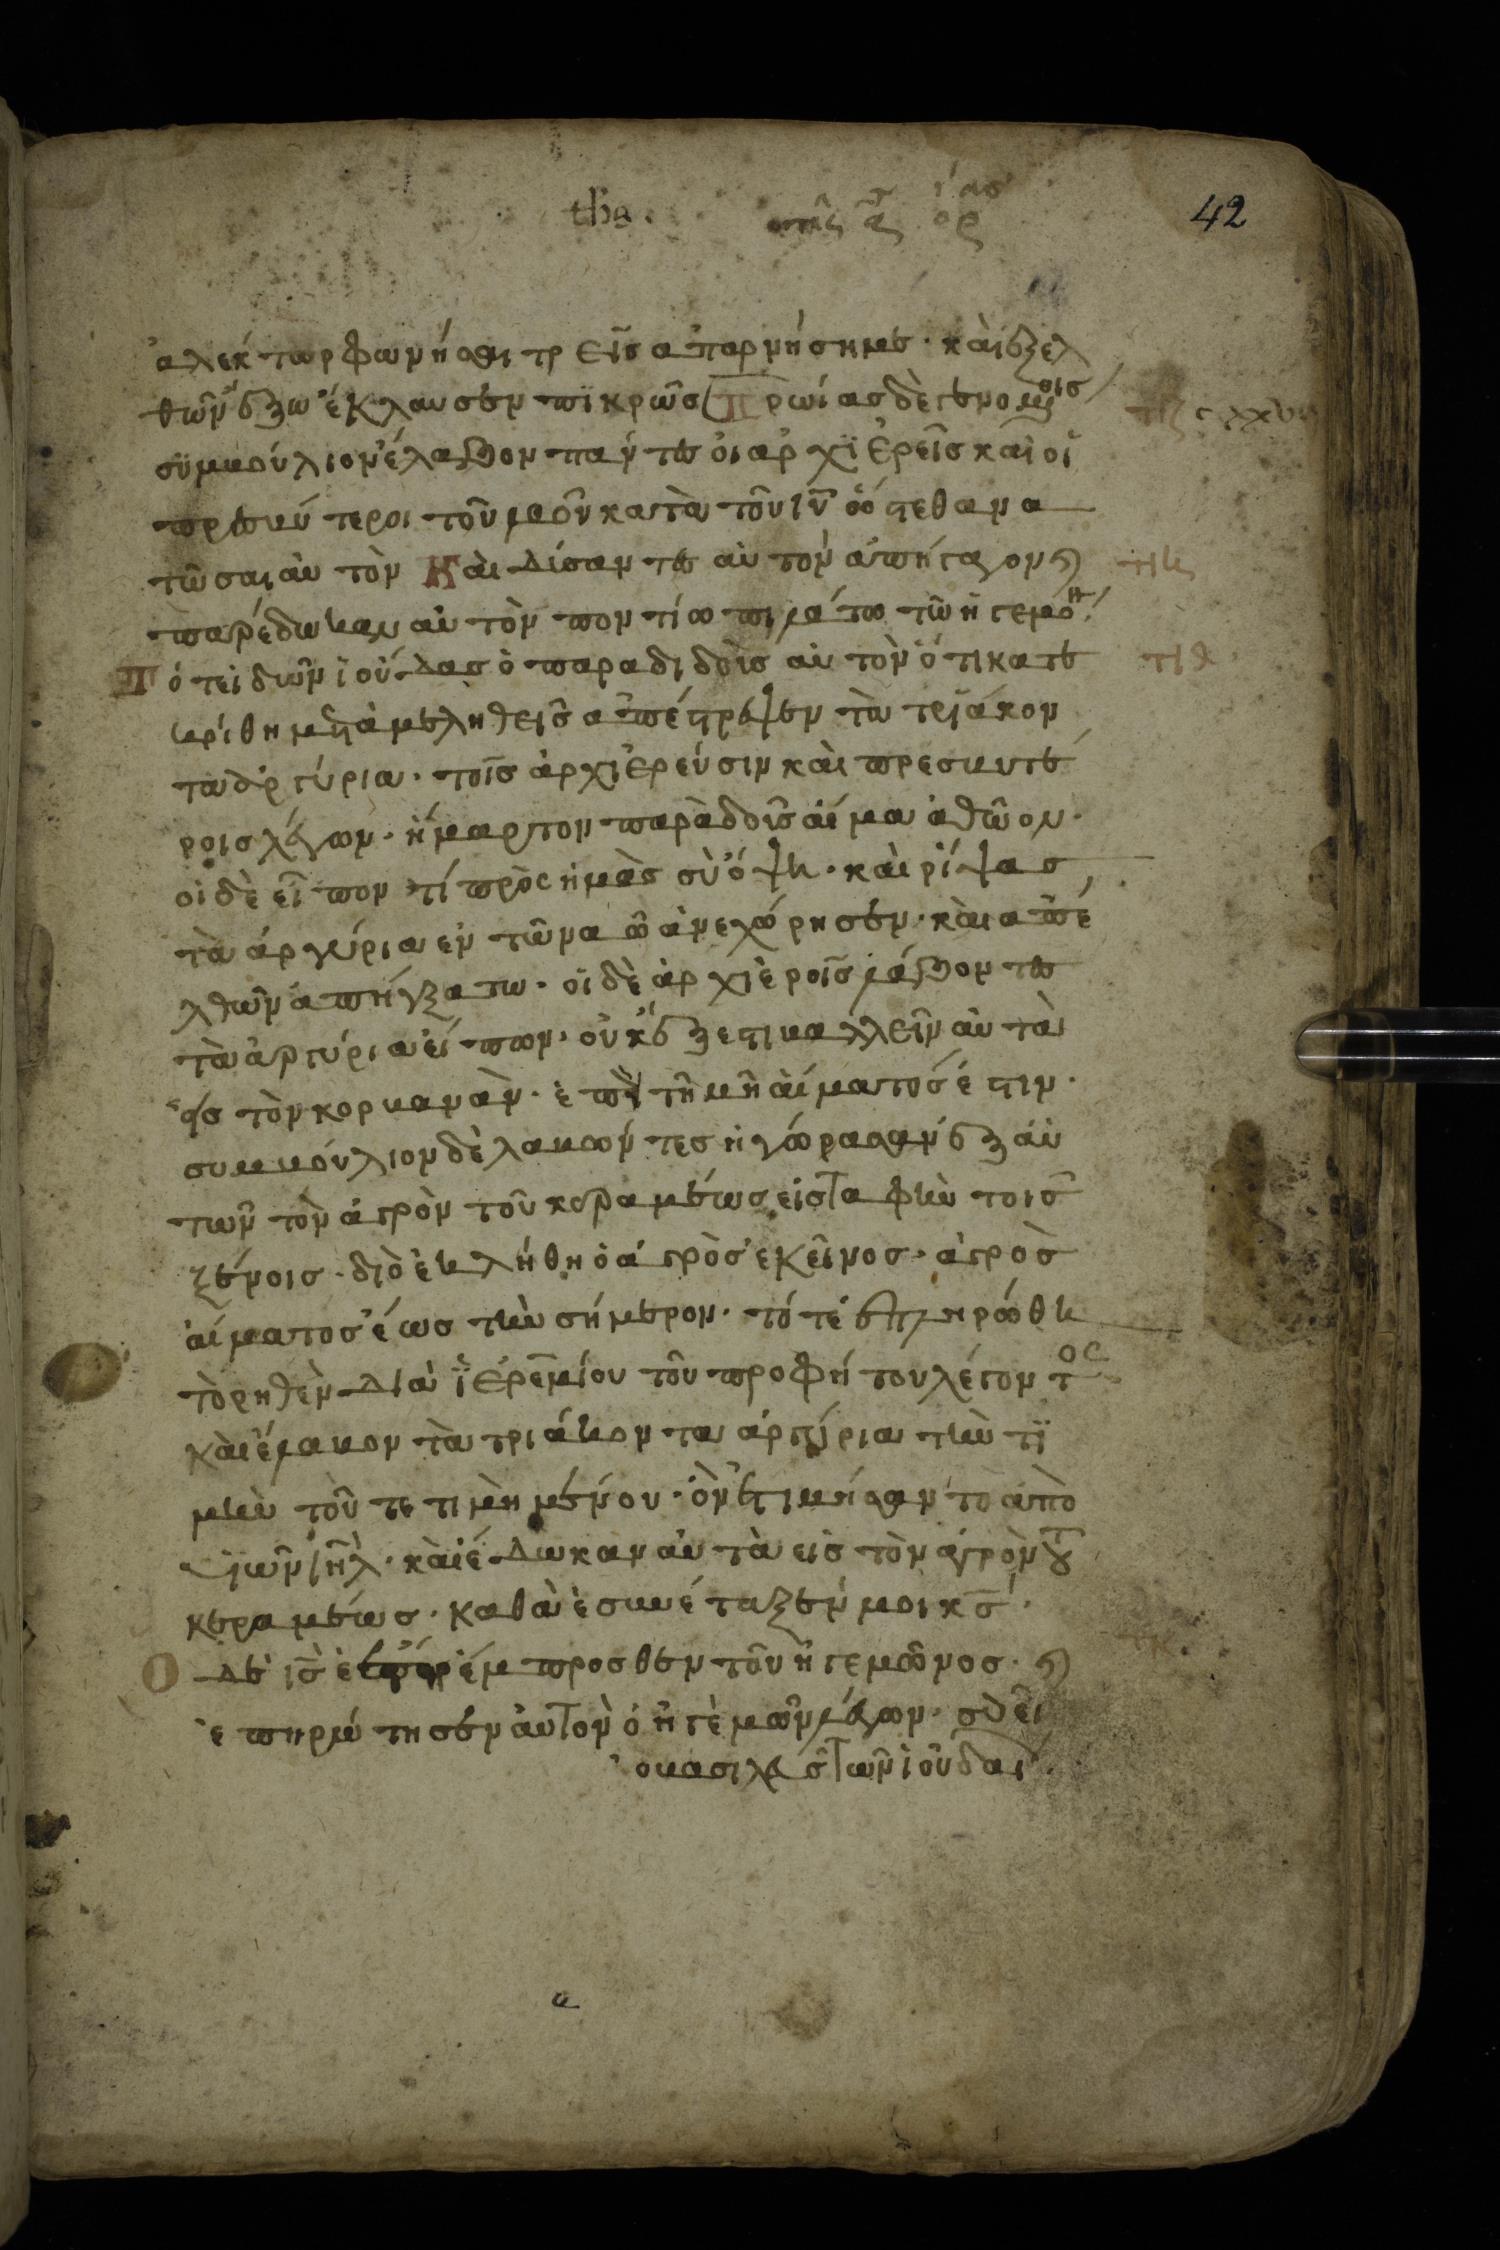 της α ορ
42
ἀλέκτωρφωνήσαιτρεῖσαπαρνήσημε· καὶἐξελ
θῶνἔξωἔκλαυσενπϊκρῶσ Πρωίασδὲγενομένησ
σϋμβούλιονἔλαβονπάντεσὁιαρχϊἐρεῖσκαὶοἱ
πρεσβύτεροιτοῦλαοῦκατὰτοῦιυ ὅστεθανα
τῶσαιἀυτὸν Καὶδίσαντεσἀυτὸνάπήγαγονκαὶ τιη
παρέδωκανἀυτὸνποντίωπιλάτωτῶἡγεμόνι
Πότεἰδῶνϊούδασὁπαραδιδοὺσἀυτὸνὅτικατε τιθ
κρίθημεταμεληθεῖσαπέστρεψεντὰτριάκον
ταἀργύρια· τοῖσἀρχιἐρεύσινκαὶπρεσβυτέ
ροισλέγων· ἥμαρτονπαρὰδοῦσἁίμαἀθῶον·
οἱδὲεἶποντίπρὸσημὰσσὺόψη· καὶρίψασ
τὰἀργύριαεντῶναῶἀνεχώρησεν· καὶαπέ
λθῶνάπήγξατω· οἱδὲἀρχιἐροῖσλάβοντεσ
τὰἀργύριαεἶπων· οὐκἔξεστιβαλλεῖναὐτὰ
εἰστὸνκορβανὰν· ἐπεὶτημὴἁίματοσέστιν·
συμβούλιονδὲλαβώντεσηγώρασανἐξἀυ
τῶντὸνἀγρὸντοῦκεραμέωσεἰσταφὴντοισ
ξένοισ· διὸἐκλήθηὁάγρὸσἐκεῖνοσ· ἀγρὸσ
ἁίματοσἕωστὴνσήμερον· τότεἐπληρώθη
τὸρηθὲνδιὰϊἐρεμίουτοῦπροφήτουλέγοντοσ
καὶἔλαβοντὰτριάκονταἀργύριατὴντϊ
μὴντοῦτετιμὴμένου· ὃνἐτιμήσαντὸἀπὸ
ϋἱῶνιηλ· καὶἔδωκαναὐτὰεἰστὸνἀγρὸντοῦ
κεραμέωσ· καθὰἐσυνέταξένμοικσ·
Οδὲισἐέμπροσθεντοῦἡγεμῶνοσ· καὶ
ἐπηρώτησενἀυτονὁἡγὲμῶνλέγων· σὺεῖ
ὁβασιλεὺστῶνϊοὐδαί